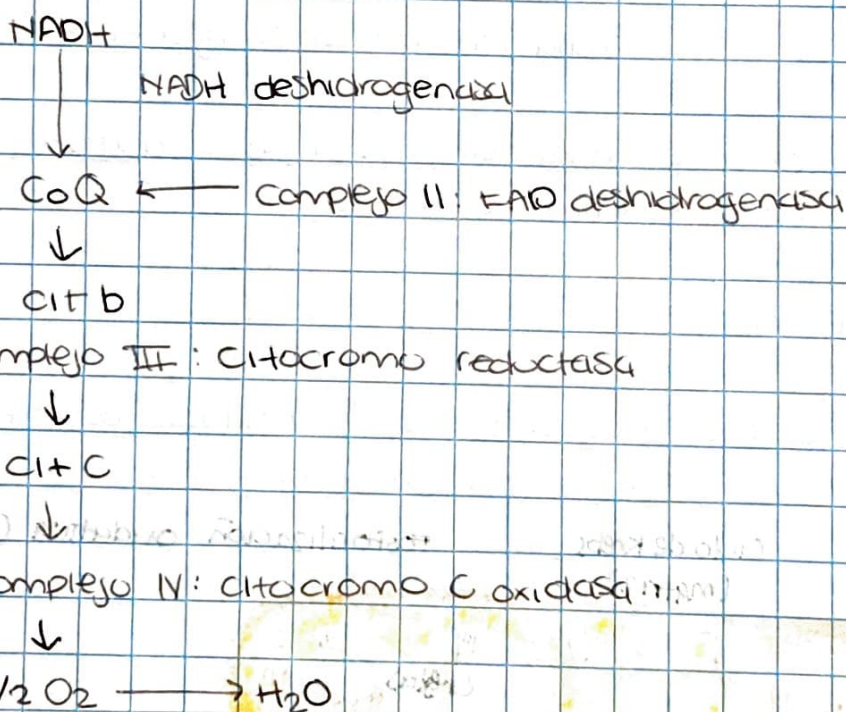 NADH
↓ NADH deshidrogenasa
CoQ ← Complejo II: FAD deshidrogenasa
↓
cit b
mplejo III: Citocromo reductasa
↓
cit C
↓
omplejo IV: citocromo C oxidasa
↓
/2 O2 → H2O